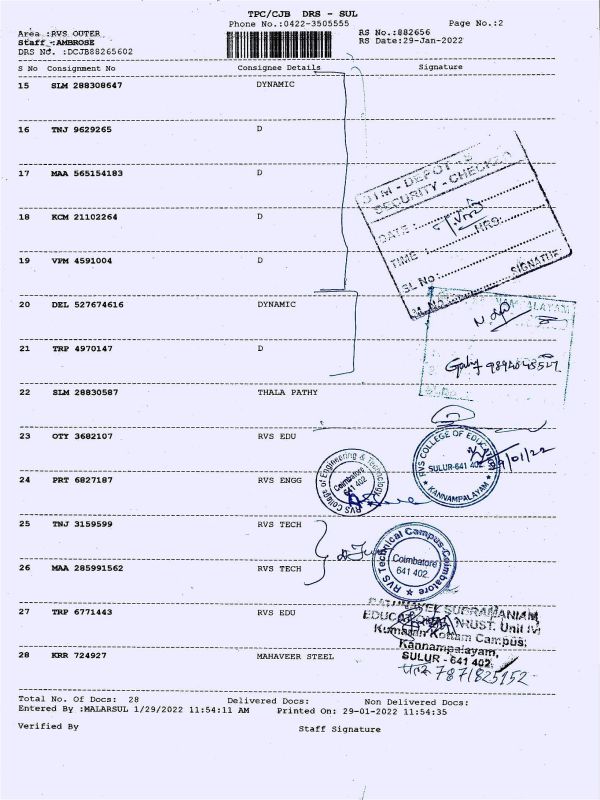 TPC/CJB DRS - SUL
Phone No.:0422-3505555
Page No.:2
Area :RVS OUTER
RS No.:882656
Staff :AMBROSE
RS Date:29-Jan-2022
DRS No. :DCJB88265602
S No Consignment No Consignee Details Signature
15 SLM 288308647 DYNAMIC
16 TNJ 9629265 D
17 MAA 565154183 D
18 KCM 21102264 D
19 VPM 4591004 D
20 DEL 527674616 DYNAMIC
21 TRP 4970147 D
22 SLM 28830587 THALA PATHY
23 OTY 3682107 RVS EDU
24 PRT 6827187 RVS ENGG
25 TNJ 3159599 RVS TECH
26 MAA 285991562 RVS TECH
27 TRP 6771443 RVS EDU
28 KRR 724927 MAHAVEER STEEL
DEPOT
SECURITY - CHECKED
DATE :
TIME : HRS.
SL No:
SIGNATURE
RVS COLLEGE OF EDUCATION
SULUR-641 402.
KANNAMPALAYAM
RVS College of Engineering & Technology
Coimbatore
641 402
RVS Technical Campus-Coimbatore
Coimbatore
641 402.
SUBRAMANIAM
EDUCATIONAL TRUST. Unit IV
Kumaran Kottam Campus,
Kannampalayam,
SULUR - 641 402.
7871825152
Total No. Of Docs: 28 Delivered Docs: Non Delivered Docs:
Entered By :MALARSUL 1/29/2022 11:54:11 AM Printed On: 29-01-2022 11:54:35
Verified By Staff Signature